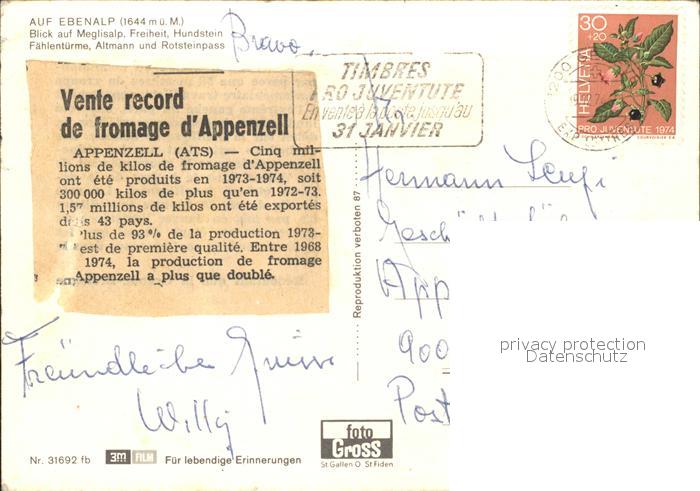 AUF EBENALP (1644 m ü. M.)
Blick auf Meglisalp, Freiheit, Hundstein
Fählentürme, Altmann und Rotsteinpass
Bravo.
Vente record
de fromage d'Appenzell
APPENZELL (ATS) — Cinq mil-
lions de kilos de fromage d'Appenzell
ont été produits en 1973-1974, soit
300 000 kilos de plus qu'en 1972-73.
1,57 millions de kilos ont été exportés
dans 43 pays.
Plus de 93 % de la production 1973-
est de première qualité. Entre 1968
1974, la production de fromage
Appenzell a plus que doublé.
Freundliche Grüsse
Willy
Nr. 31692 fb
3M FILM
Für lebendige Erinnerungen
foto
Gross
St.Gallen O St.Fiden
Reproduktion verboten 87
TIMBRES
PRO JUVENTUTE
En vente à la poste jusqu'au
31 JANVIER
30
+20
HELVETIA
PRO JUVENTUTE 1974
COURVOISIER S.A.
1200
Hermann
Gesch
App
900
Post
privacy protection
Datenschutz